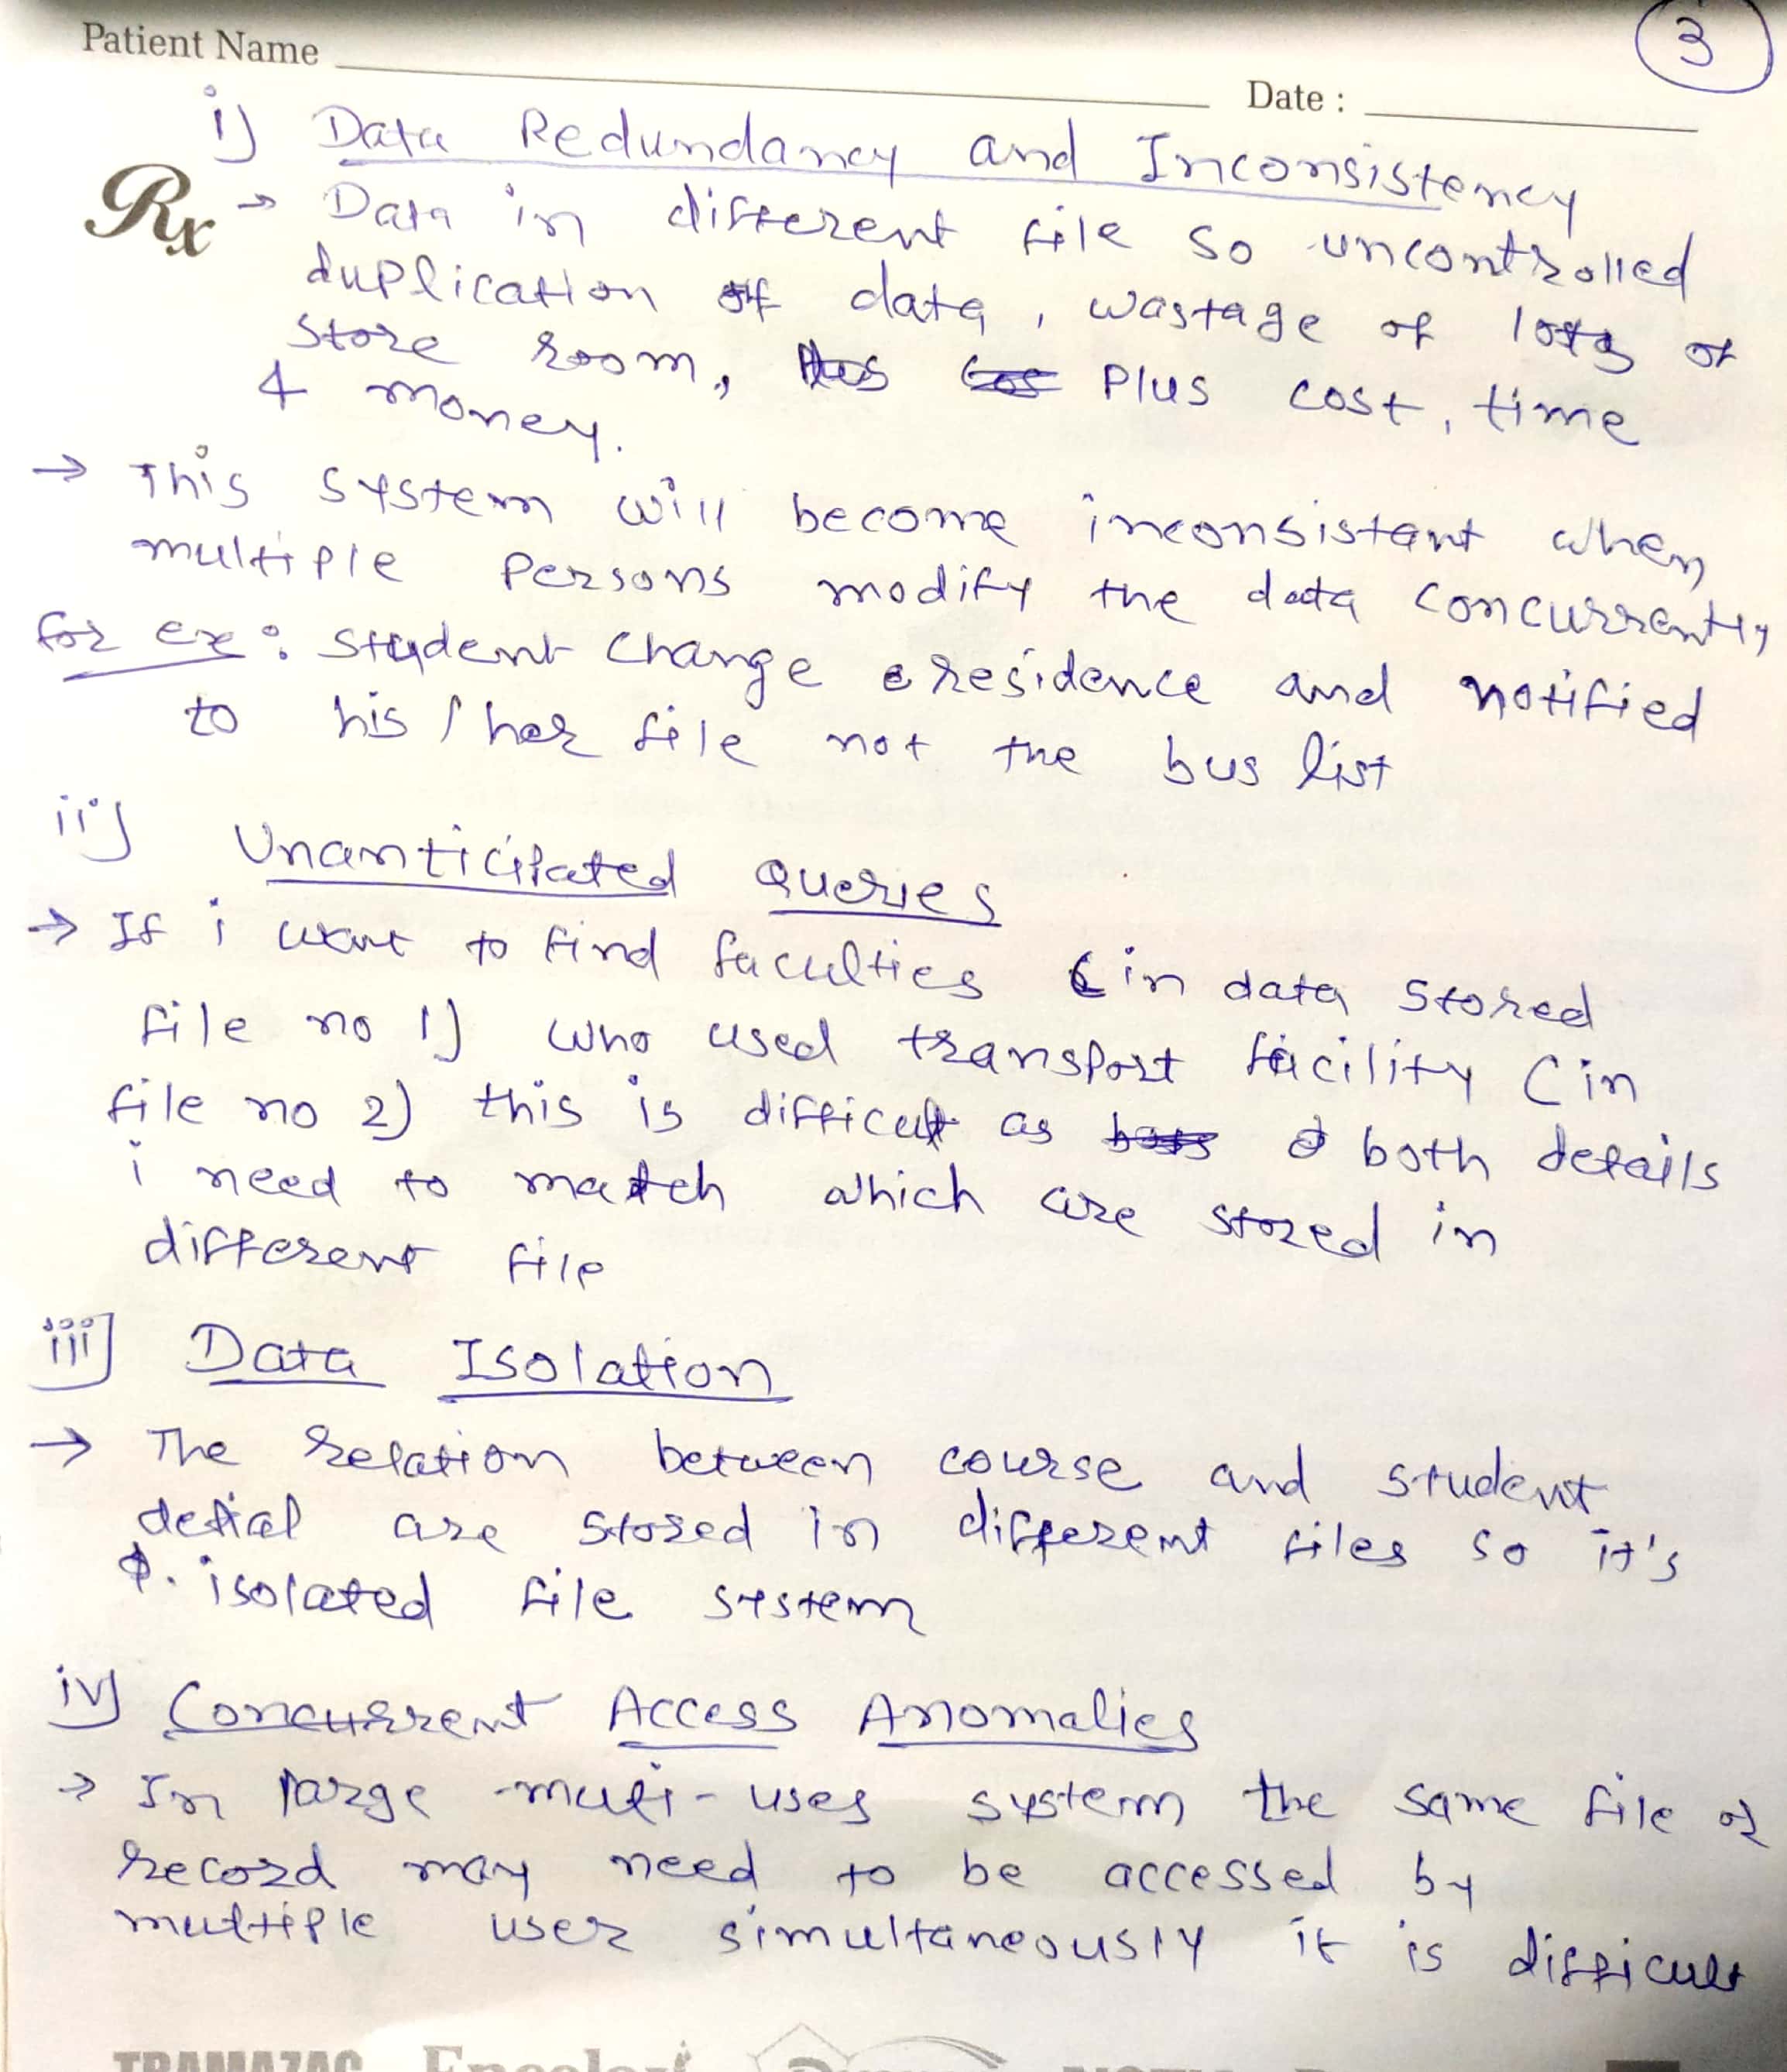 3
Patient Name
Date :
i) Data Redundancy and Inconsistency
Rx → Data in different file so uncontrolled
duplication of data, wastage of lots of
store room, Plus cost, time
& money.
→ This system will become inconsistant when
multiple persons modify the data concurrently
for ex: student change residence and notified
to his / her file not the bus list
ii) Unanticipated Queries
→ If i want to find faculties (in data stored
file no 1) who used transport facility (in
file no 2) this is difficult as both details
i need to match which are stored in
different file
iii] Data Isolation
→ The relation between course and student
detial are stored in different files so it's
isolated file system
iv) Concurrent Access Anomalies
→ In large multi-uses system the same file or
record may need to be accessed by
multiple user simultaneously it is difficult
TRAMAZAC